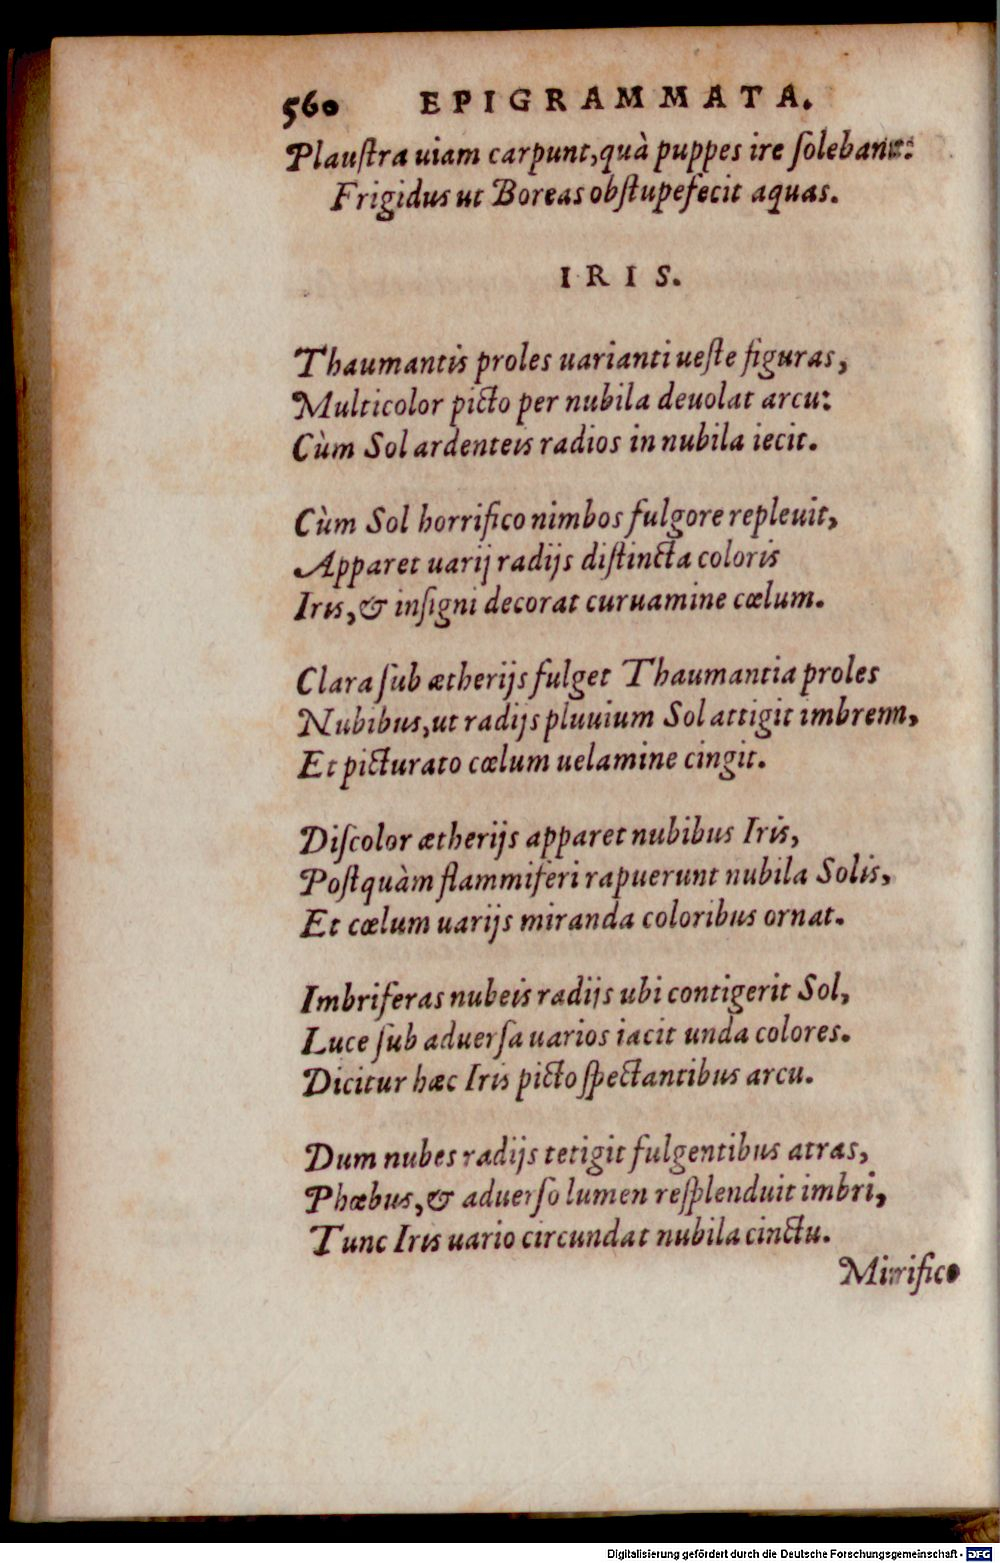 560 EPIGRAMMATA.
Plauſtra uiam carpunt, quà puppes ire ſolebant:
Frigidus ut Boreas obſtupefecit aquas.
IRIS.
Thaumantis proles uarianti ueſte figuras,
Multicolor picto per nubila deuolat arcu:
Cùm Sol ardenteis radios in nubila iecit.
Cùm Sol horrifico nimbos fulgore repleuit,
Apparet uarij radijs diſtincta coloris
Iris, & inſigni decorat curuamine cœlum.
Clara ſub ætherijs fulget Thaumantia proles
Nubibus, ut radijs pluuium Sol attigit imbrem,
Et picturato cœlum uelamine cingit.
Diſcolor ætherijs apparet nubibus Iris,
Poſtquàm flammiferi rapuerunt nubila Solis,
Et cœlum uarijs miranda coloribus ornat.
Imbriferas nubeis radijs ubi contigerit Sol,
Luce ſub aduerſa uarios iacit unda colores.
Dicitur hæc Iris picto ſpectantibus arcu.
Dum nubes radijs tetigit fulgentibus atras,
Phœbus, & aduerſo lumen reſplenduit imbri,
Tunc Iris uario circundat nubila cinctu.
Mirifico
Digitalisierung gefördert durch die Deutsche Forschungsgemeinschaft - DFG